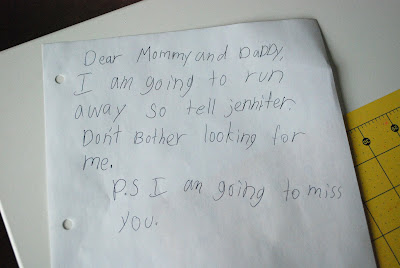 Dear Mommy and DaDDy,
I am going to run
away so tell jenniter.
Don't Bother looking for
me.
P.S I an going to miss
you.